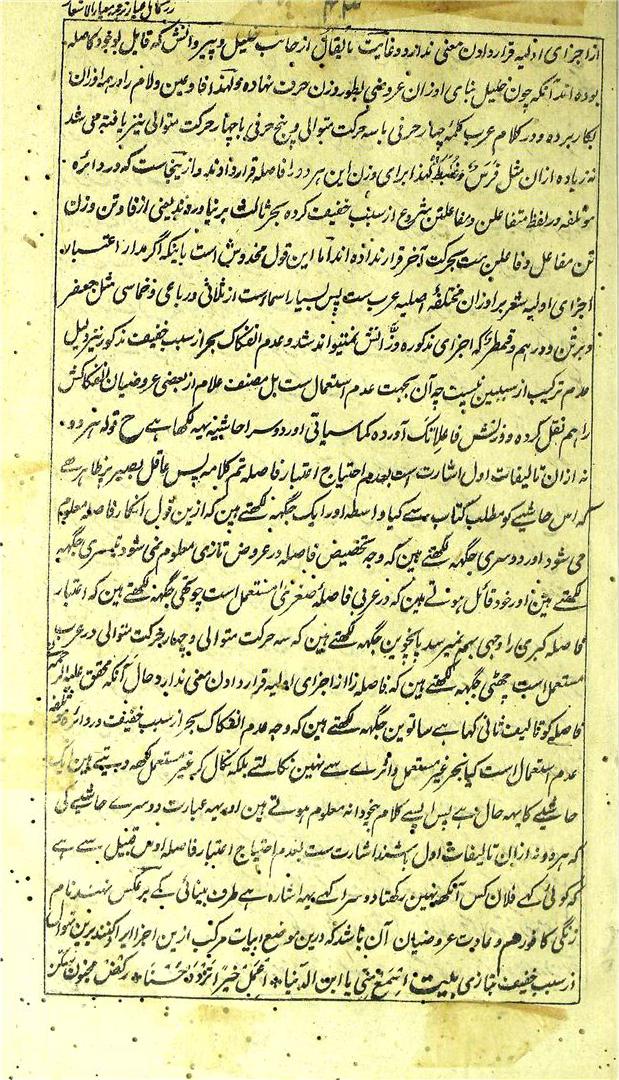 ۴۳
از اجزای اولیه قرار دادن معنی ندارد و غایت ما یقال از جانب خلیل و پیروانش که قایل بوجود فاصله
بوده اند آنکه چون خلیل بنای اوزان عروضی بطور وزن حرف نهاده و لهذا فا و عین و لام را در همه اوزان
بکار برده و در کلام عرب کلمه چهار حرفی با سه حرکت متوالی و پنج حرفی با چهار حرکت متوالی نیز یافته می شد
نه زیاده ازان مثل فَرَسٌ و لهذا برای وزن این هر دو را فاصله قرار دادند و ازینجاست که در دائره
مؤتلفه در لفظ متفاعلن و مفاعلتن شروع از سبب خفیف کرده بحر ثالث بر نیاورده اند یعنی از فا و تن وزن
تن مفاعل و فاعلن ست بحرکت آخر قرار نداده اند اما این قول مخدوش است باینکه اگر مدار اعتبار
اجزای اولیه شعر بر اوزان مختلفهٔ اصلیه عرب ست پس بسیار اسماست از ثلاثی و رباعی و خماسی مثل جعفر
و برثن و درهم و قمطر که اجزای مذکوره وزانش نمیتواند شد و عدم انفکاک بحر از سبب خفیف مذکور نیز دلیل
عدم ترکیب از سببین نیست چه آن بجهت عدم استعمال ست بل مصنف علام از بعضی عروضیان انفکاکش
را هم نقل کرده و وزنش فاعلاتک آورده کما سیاتی اور دوسرا حاشیه یہہ لکھا ہے ح قوله هر دو
نه ازان تالیفات اول اشارت است بعدم احتیاج اعتبار فاصله تم کلامه پس عاقل بصیر پر ظاہر ہے
کہ اس حاشیے کو مطلب کتاب سے کیا واسطہ اور ایک جگہہ لکھتے ہین کہ ازین قول انکار فاصله معلوم
می شود اور دوسری جگہہ لکھتے ہین کہ وجه تخصیص فاصله در عروض تازی معلوم نمی شود تیسری جگہہ
لکھتے ہین اور خود قائل ہوتے ہین کہ در عربی فاصلهٔ صغری مستعمل است چوتھی جگہہ لکھتے ہین کہ اعتبار
فاصله کبری را وجهی بهم نمیرسد پانچوین جگہہ لکھتے ہین کہ سه حرکت متوالی و چهار حرکت متوالی در عرب
مستعمل است چھٹی جگہہ لکھتے ہین کہ فاصله را از اجزای اولیه قرار دادن معنی ندارد و حال آنکه محقق علیه الرحمه
فاصلے کو تالیف ثانی کہا ہے ساتوین جگہہ لکھتے ہین کہ وجه عدم انفکاک بحر از سبب خفیف در دائره مؤتلفه
عدم استعمال است کیا بحر غیر مستعمل دائرے سے نہین نکالتے بلکہ نکال کر غیر مستعمل لکھہ دیتے ہین ایک
حاشیے کا یہہ حال ہے پس ایسے کلام بیخودانہ معلوم ہوتے ہین اور یہہ عبارت دوسرے حاشیے کی
کہ هر دو نه ازان تالیفات اول باشند اشارت ست بعدم احتیاج اعتبار فاصله اوس قبیل سے ہے
کہ کوئی کہے فلان کس آنکھہ نہین رکھتا دوسرا کہے یہہ اشارہ ہے طرف بینائی کے بر عکس نهند نام
زنگی کافور هم و عادت عروضیان آن باشد که درین موضع ابیات مرکب ازین اجزا ایراد کنند برین
از سبب خفیف بتازی بیت اسمع منی یا ابن الدنیا * اعمل خیرا تزدد حسنا *